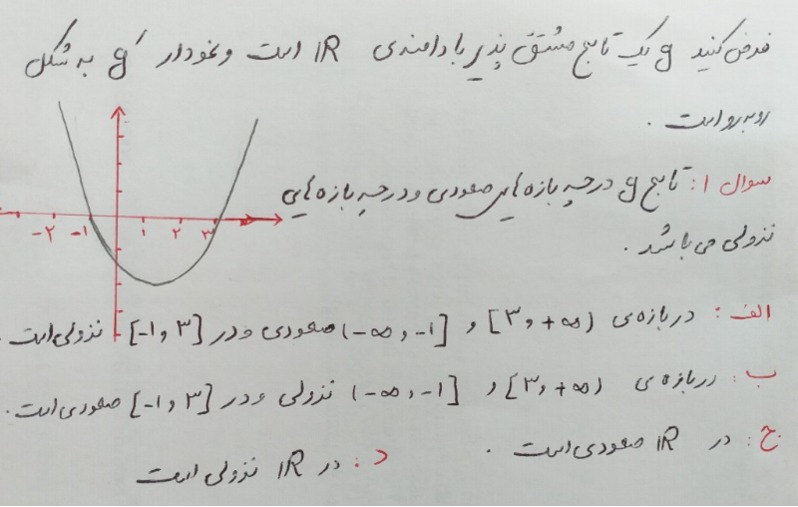 فرض کنید g یک تابع مشتق پذیر با دامنه‌ی IR است و نمودار g' به شکل
روبرو است .
سوال ۱ : تابع g در چه بازه هایی صعودی و در چه بازه هایی
نزولی می باشد .
-۲ -۱ ۱ ۲ ۳
الف : در بازه‌ی (۳, +∞] و [-∞, -۱) صعودی و در [-۱, ۳] نزولی است .
ب : در بازه‌ی (۳, +∞] و [-∞, -۱) نزولی و در [-۱, ۳] صعودی است .
ج : در IR صعودی است . د : در IR نزولی است